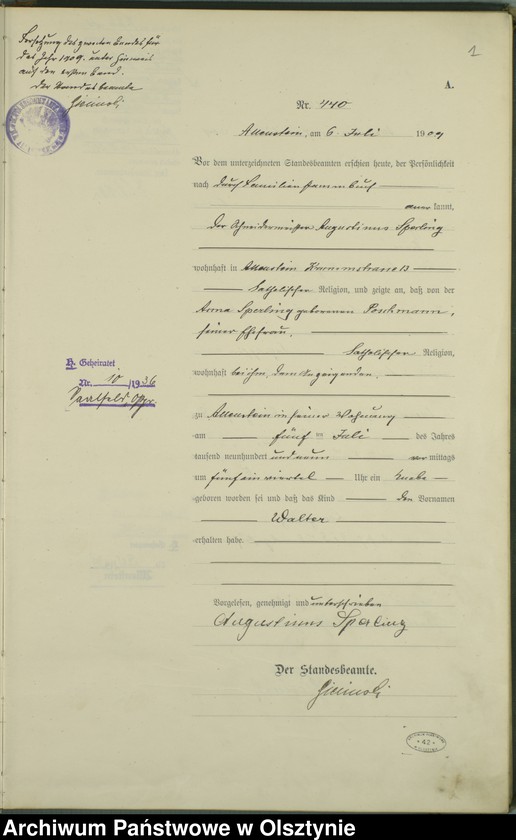 Fortsetzung des zweiten Bandes für
das Jahr 1909. unter Hinweis
auf den ersten Band.
Der Standesbeamte
1
A.
Nr. 440
Allenstein, am 6. Juli 1909
Vor dem unterzeichneten Standesbeamten erschien heute, der Persönlichkeit
nach durch Familienstammbuch
anerkannt,
der Schneidermeister Augustinus Sperling
wohnhaft in Allenstein Krummstrasse 13
katholischer Religion, und zeigte an, daß von der
Anna Sperling geborenen Poschmann,
seiner Ehefrau,
katholischer Religion,
wohnhaft bei ihm, dem Anzeigenden,
zu Allenstein in seiner Wohnung
am fünften Juli des Jahres
tausend neunhundert und neun vormittags
um fünf ein viertel Uhr ein Knabe
geboren worden sei und daß das Kind den Vornamen
Walter
erhalten habe.
H. Geheiratet
Nr. 10 /1936
Saalfeld, Ostpr.
Vorgelesen, genehmigt und unterschrieben
Augustinus Sperling
Der Standesbeamte.
42
Archiwum Państwowe w Olsztynie